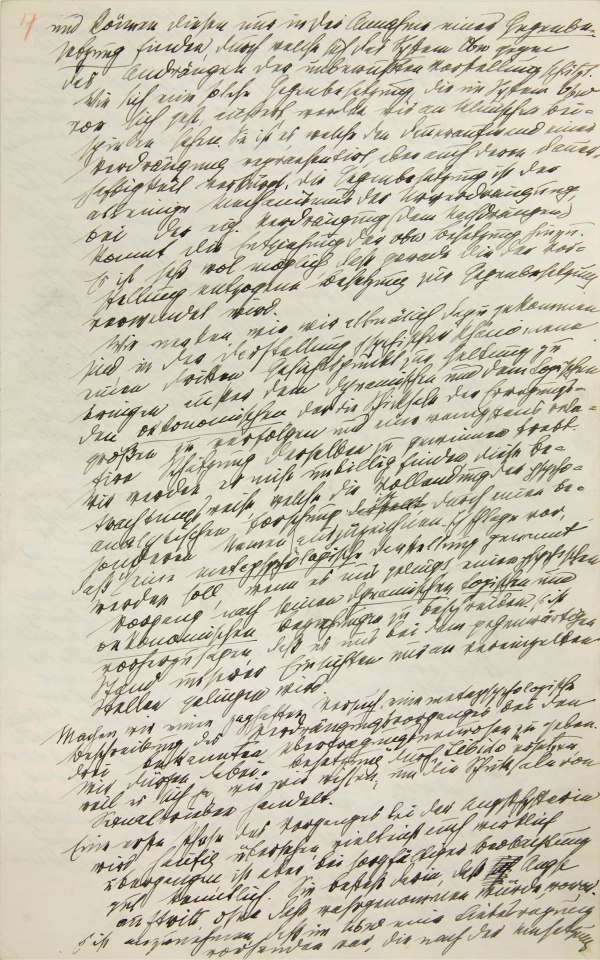 17
und können diesen nur in der Annahme einer Gegenbe-
setzung finden, durch welche sich das System Vbw gegen
das Andrängen der unbewußten Vorstellung schützt.
Wie sich eine solche Gegenbesetzung, die im System Vbw
vor sich geht, äußert werden wir an klinischen Bei-
spielen sehen. Sie ist es welche den Daueraufwand einer
Verdrängung repraesentirt aber auch deren Dauer-
haftigkeit verbürgt. Die Gegenbesetzung ist der
alleinige Mechanismus der Urverdrängung,
bei der eig Verdrängung (dem Nachdrängen)
kommt die Entziehung der vbw Besetzung hinzu.
Es ist sehr wol möglich daß gerade die der Vor-
stellung entzogene Besetzung zur Gegenbesetzung
verwendet wird.
Wir merken, wie wir allmälich dazu gekommen
sind in der Darstellung psychischer Phänomene
einen dritten Gesichtspunkt zur Geltung zu
bringen außer dem dynamischen und dem topischen
den oekonomischen der die Schicksale der Erregungs-
größen zu verfolgen und eine wenigstens rela-
tive Schätzung derselben zu gewinnen strebt.
Wir werden es nicht unbillig finden diese Be-
trachtungsweise welche die Vollendung der psycho-
analytischen Forschung durch einen be-
sonderen Namen auszuzeichnen. Ich schlage vor,
daß eine metapsychologische Darstellung genannt
werden soll, wenn es uns gelingt, einen psychischen
Vorgang nach seinen dynamischen topischen und
oekonomischen Beziehungen zu beschreiben. Es ist
vorherzusagen daß es uns bei dem gegenwärtigen
Stand unserer Einsichten nur an vereinzelten
Stellen gelingen wird
Machen wir einen zaghaften Versuch, eine metapsychologische
Beschreibung des Verdrängungsvorganges bei den
drei bekannten Übertragungsneurosen zu geben.
Wir dürfen dabei Besetzung durch Libido ersetzen,
weil es sich ja, wie wir wissen, um die Schicksale von
Sexualtrieben handelt.
Eine erste Phase des Vorganges bei der Angsthysterie
wird häufig übersehen vielleicht auch wirklich
übergangen ist aber bei sorgfältiger Beobachtung
gut kenntlich. Sie besteht darin, daß Angst
auftritt ohne daß wahrgenommen würde, wovor.
Es ist anzunehmen, daß im Ubw eine Liebesregung
vorhanden war, die nach der Umsetzung